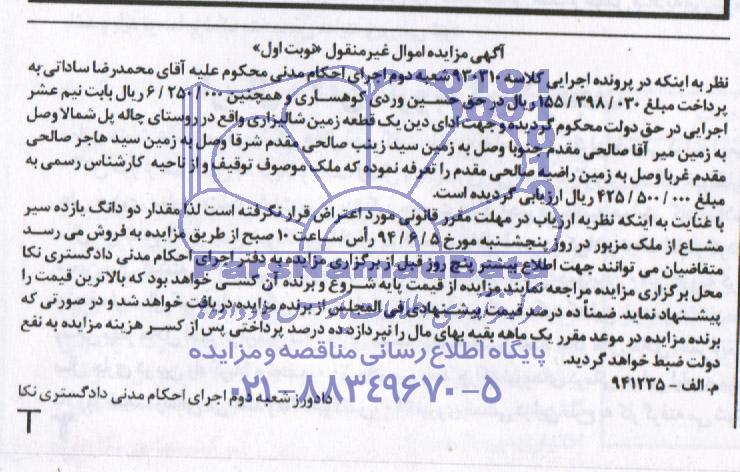 آگهی مزایده اموال غیر منقول «نوبت اول»
نظر به اینکه در پرونده اجرایی کلاسه ۹۳۰۳۱۰ شعبه دوم اجرای احکام مدنی محکوم علیه آقای محمدرضا ساداتی به
پرداخت مبلغ ۱۵۵/۳۹۸/۰۳۰ ریال در حق حسین وردی کوهساری و همچنین ۶/۲۵۰/۰۰۰ ریال بابت نیم عشر
اجرایی در حق دولت محکوم گردیده و جهت ادای دین یک قطعه زمین شالیزاری واقع در روستای چاله پل شمالا وصل
به زمین میر آقا صالحی مقدم جنوبا وصل به زمین سید زینب صالحی مقدم شرقا وصل به زمین سید هاجر صالحی
مقدم غربا وصل به زمین راضیه صالحی مقدم را تعرفه نموده که ملک موصوف توقیف و از ناحیه کارشناس رسمی به
مبلغ ۴۲۵/۵۰۰/۰۰۰ ریال ارزیابی گردیده است.
با عنایت به اینکه نظریه ارزیاب در مهلت مقرر قانونی مورد اعتراض قرار نگرفته است لذا مقدار دو دانگ یازده سیر
مشاع از ملک مزبور در روز پنجشنبه مورخ ۹۴/۶/۵ رأس ساعت ۱۰ صبح از طریق مزایده به فروش می رسد
متقاضیان می توانند جهت اطلاع بیشتر پنج روز قبل از برگزاری مزایده به دفتر اجرای احکام مدنی دادگستری نکا
محل برگزاری مزایده مراجعه نمایند مزایده از قیمت پایه شروع و برنده آن کسی خواهد بود که بالاترین قیمت را
پیشنهاد نماید. ضمناً ده درصد قیمت پیشنهادی فی المجلس از برنده مزایده دریافت خواهد شد و در صورتی که
برنده مزایده در موعد مقرر یک ماهه بقیه بهای مال را نپردازد ده درصد پرداختی پس از کسر هزینه مزایده به نفع
دولت ضبط خواهد گردید.
م.الف - ۹۴۱۲۳۵
دادورز شعبه دوم اجرای احکام مدنی دادگستری نکا
T
ParsNamadData
پایگاه اطلاع رسانی مناقصه و مزایده
۰۲۱-۸۸۳۴۹۶۷۰-۵